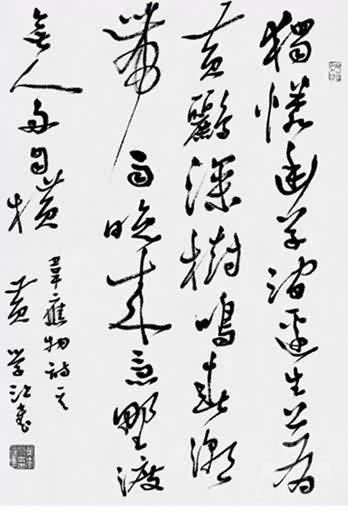 獨憐幽草澗邊生上有
黃鸝深樹鳴春潮
帶雨晚來急野渡
無人舟自橫
韋應物詩
黄學江書